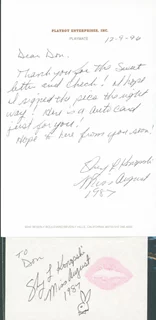 PLAYBOY ENTERPRISES, INC.
PLAYMATE
Dear Don,
Thank you for the Sweet
letter and Check! I hope
I signed the pics the right
way! Here is a auto card
just for you!
Hope to hear from you soon!
Miss August
1987
To
Don
Miss August
1987